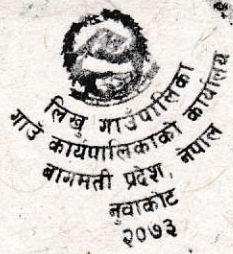 लिखु गाउँपालिका
गाउँ कार्यपालिकाको कार्यालय
बागमती प्रदेश, नेपाल
नुवाकोट
२०७३